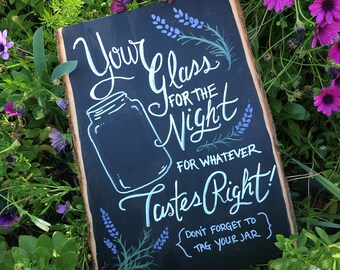 Your
Glass
FOR THE
Night
FOR WHATEVER
Tastes Right!
{DON'T FORGET TO
TAG YOUR JAR}